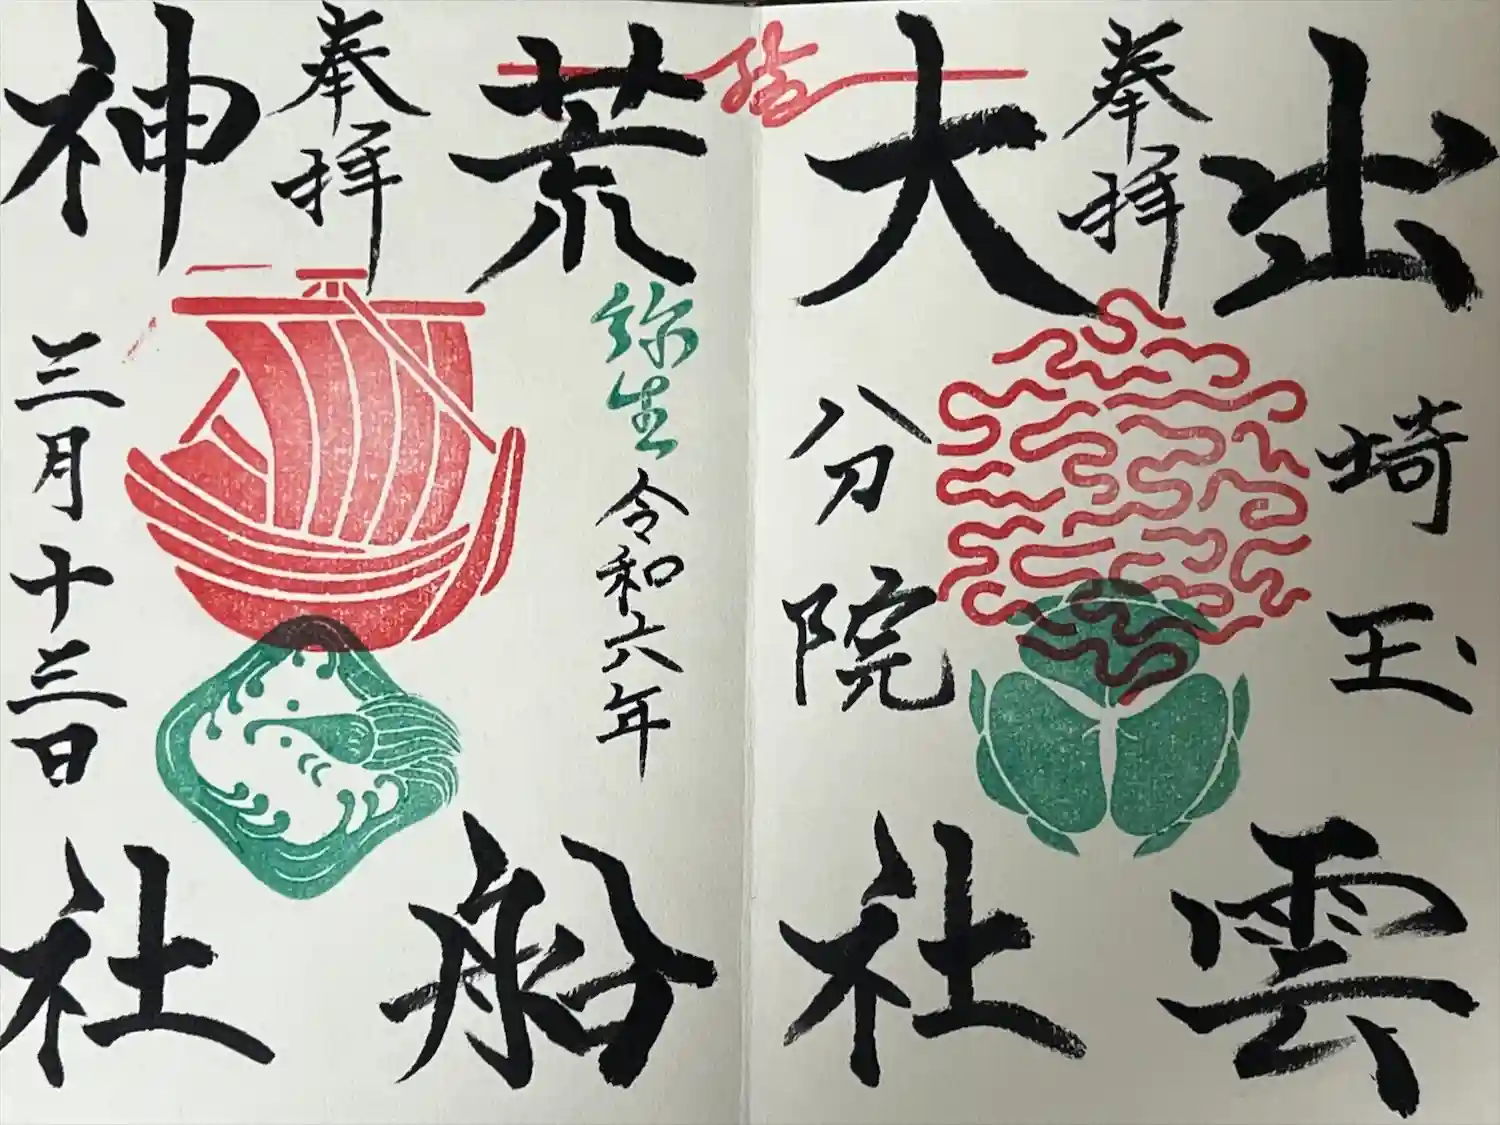 出雲
奉拝
埼玉
大社
分院
結
荒船
奉拝
弥生
令和六年
神社
三月十三日